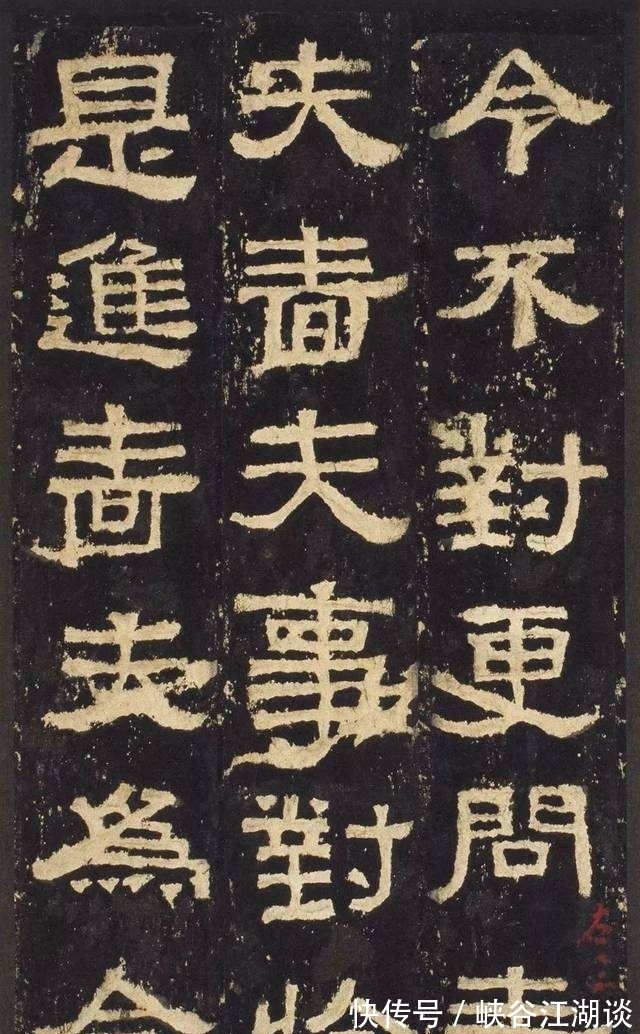 令不對更問
夫嗇夫事對
是進嗇夫為
快传号 / 峡谷江湖谈